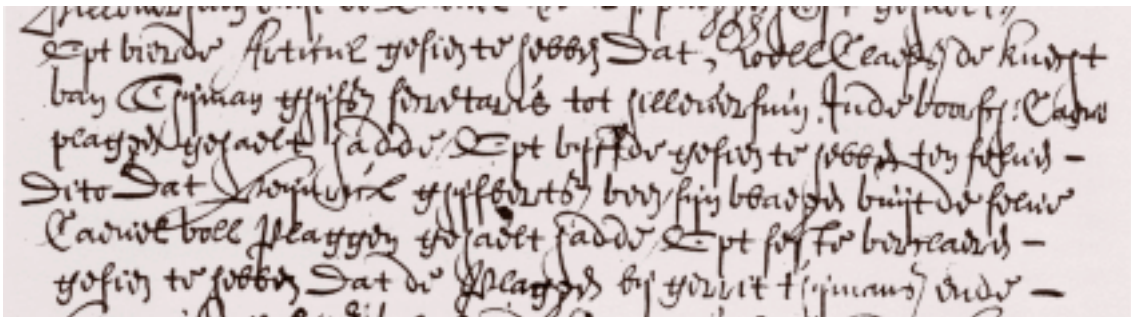 Opt vierde Artikul gesien te hebben Dat, Roell Claess de knecht
van Thijman ghijssz secretaris tot hilleversum Inde voorsz: Caeue
plaggen gehaelt hadde Opt vijffde gesien te hebben ten selue
Dito Dat ghijsberts een sijn waegen vuijt de selue
Caeuel voll Plaggen gehaelt hadde Opt seste verclaert
gesien te hebben Dat de Plaggen bij gerrit thijmans ende